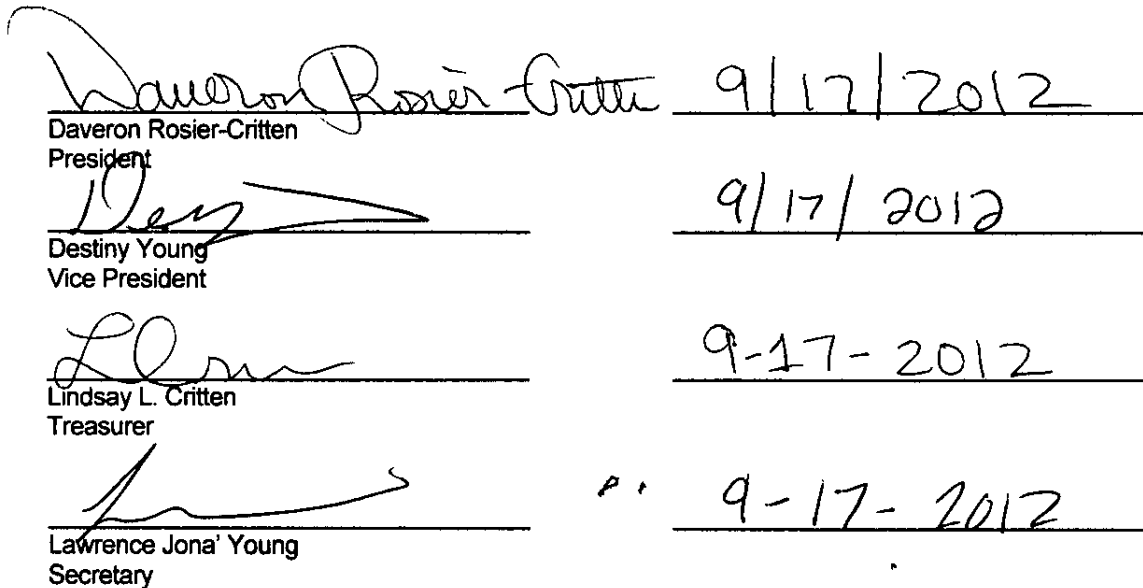 Daveron Rosier-Critten 9/17/2012
Daveron Rosier-Critten
President
9/17/2012
Destiny Young
Vice President
9-17-2012
Lindsay L. Critten
Treasurer
9-17-2012
Lawrence Jona' Young
Secretary